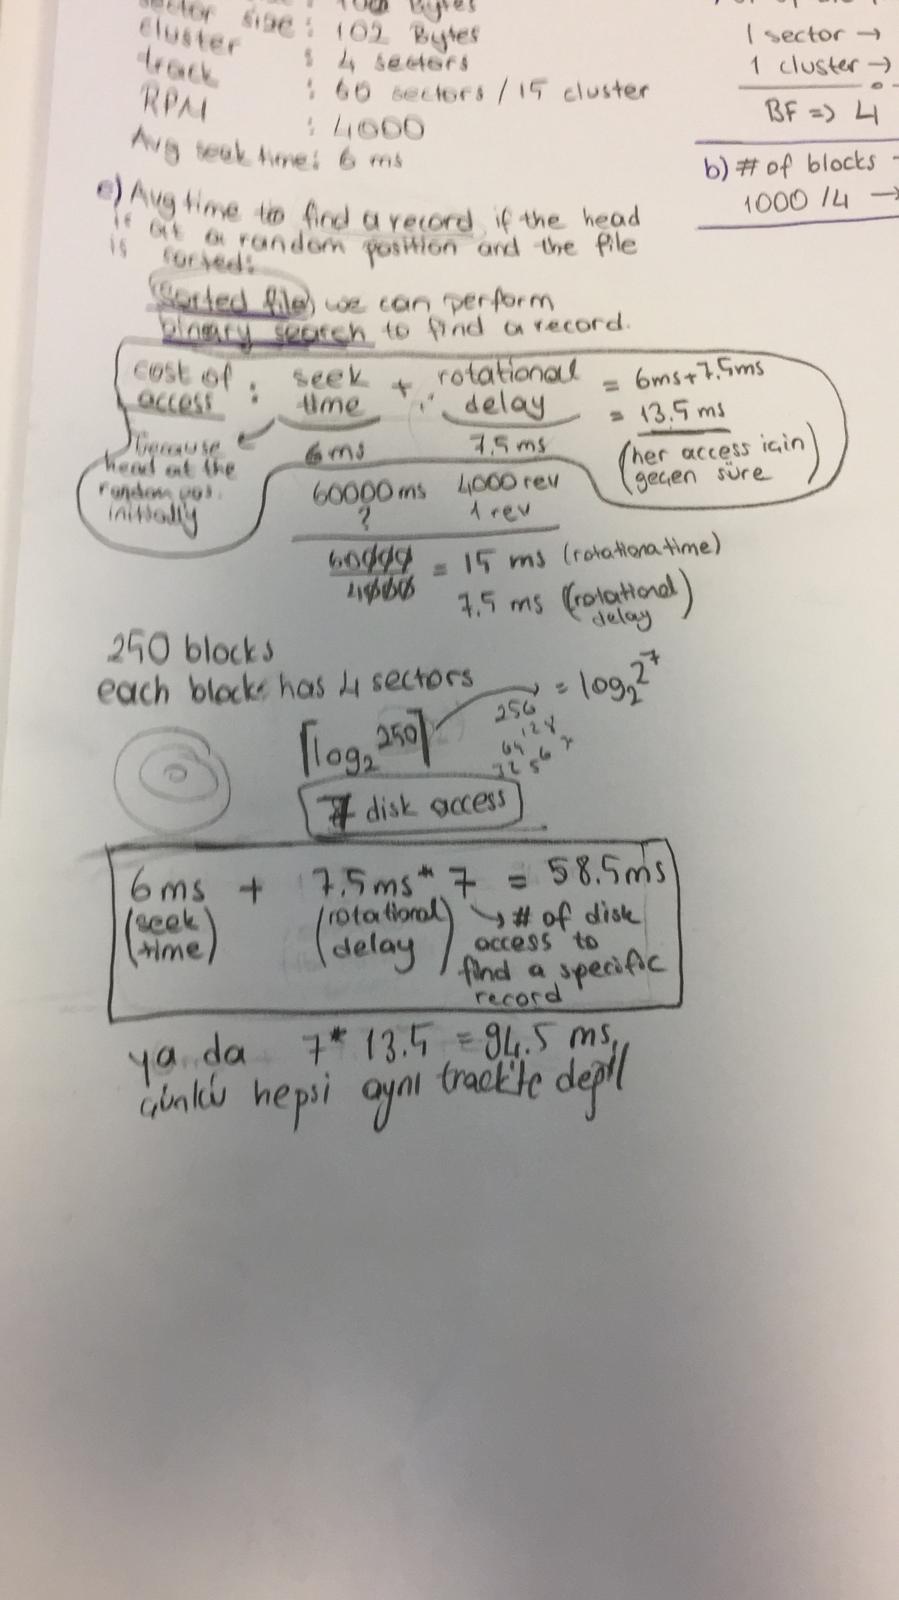 Bytes
sector size : 102 Bytes
cluster : 4 sectors
track : 60 sectors / 15 cluster
RPM : 4000
Avg seek time : 6 ms
1 sector →
1 cluster →
BF => 4
b) # of blocks
1000 /4 →
e) Avg time to find a record if the head
is at a random position and the file
is sorted:
(Sorted file) we can perform
binary search to find a record.
cost of access : seek time + rotational delay = 6ms+7.5ms
= 13.5 ms
(her access için geçen süre)
because head at the random pos. initially
6ms 7.5 ms
60000 ms 4000 rev
? 1 rev
60000 / 4000 = 15 ms (rotationa time)
7.5 ms (rotational delay)
250 blocks
each blocks has 4 sectors
⌈log₂250⌉ = log₂2⁷
256
128
64
32
7 disk access
6ms + 7.5ms * 7 = 58.5ms
(seek time) (rotational delay) ↘ # of disk
access to
find a specific
record
ya da 7 * 13.5 = 94.5 ms,
çünkü hepsi aynı track'te değil